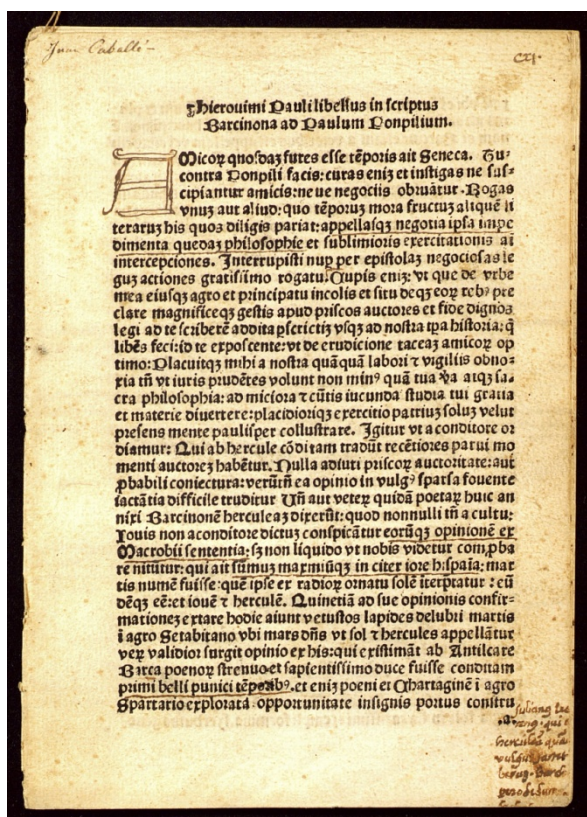 Juan Caballé
cxj.
Hierouimi Pauli libellus in scriptus
Barcinona ad Paulum Ponpilium.
AMicoꝝ quosdaꝫ fures esse tẽporis ait Seneca. Tu
contra Ponpili facis: curas eniꝫ et instigas ne sus⸗
cipiantur amicis: ne ue negociis obruãtur. Rogas
vnuꝫ aut aliud: quo tẽporuꝫ mora fructuꝫ aliquẽ li
teraruꝫ his quos diligis pariat: appellasqꝫ negotia ipsa impe
dimenta quedaꝫ philosophie et sublimioris exercitationis ac
intercepciones. Interrupisti nuꝑ per epistolaꝫ negociosas le
guꝫ actiones gratissimo rogatu. Cupis eniꝫ: vt que de vrbe
mea eiusqꝫ agro et principatu incolis et situ deqꝫ eoꝝ rebꝰ pre
clare magnificeqꝫ gestis apud priscos auctores et fide dignos
legi ad te scriberẽ addita vsqꝫ ad nostra tp̃a historia: q̃
libẽs feci: id te exposcente: vt de erudicione taceaꝫ amicoꝝ op
timo: Placuitqꝫ mihi a nostra quãquã labori ⁊ vigiliis obno⸗
xia tñ vt iuris prudẽtes volunt non minꝰ quã tua ꝟa atqꝫ sa⸗
cra philosophia: ad miciora ⁊ cũtis iucunda studia tui gratia
et materie diuertere: placidioriqꝫ exercitio patriuꝫ soluꝫ velut
presens mente paulisper collustrare. Igitur vt a conditore or
diamur: Qui ab hercule cõditam tradũt recẽtiores parui mo
menti auctoreꝫ habẽtur. Nulla adiuti priscoꝝ auctoritate: aut
ꝓbabili coniectura: verũtñ ea opinio in vulgꝰ sparsa fouente
iactãtia difficile truditur Vñ aut veteꝝ quidã poetaꝝ huic an
nixi Barcinonẽ herculeaꝫ dixerũt: quod nonnulli tñ a cultu:
Iouis non aconditore dictuꝫ conspicãtur eorũqꝫ opinionẽ ex
Macrobii sententia: sꝫ non liquido vt nobis videtur comꝓba
re nitũtur: qui ait sũmuꝫ maxmiũqꝫ in citer iore hispaĩa: mar
tis numẽ fuisse: quẽ ipse ex radioꝝ ornatu solẽ iterp̃tatur: eũ
dẽqꝫ eẽ: et iouẽ ⁊ herculẽ. Quinetiã ad sue opinionis confir⸗
mationeꝫ extare hodie aiunt vetustos lapides delubri martis
ĩ agro Setabitano vbi mars dñs vt sol ⁊ hercules appellãtur
veꝝ validior surgit opinio ex his: qui existimãt ab Antilcare
Barca poenoꝝ strenuo et sapientissimo duce fuisse conditam
primi belli punici tẽporibꝰ. et eniꝫ poeni et Chartaginẽ ĩ agro
Spartario explorata opportunitate insignis portus constitu
qui
hercules
vulgus